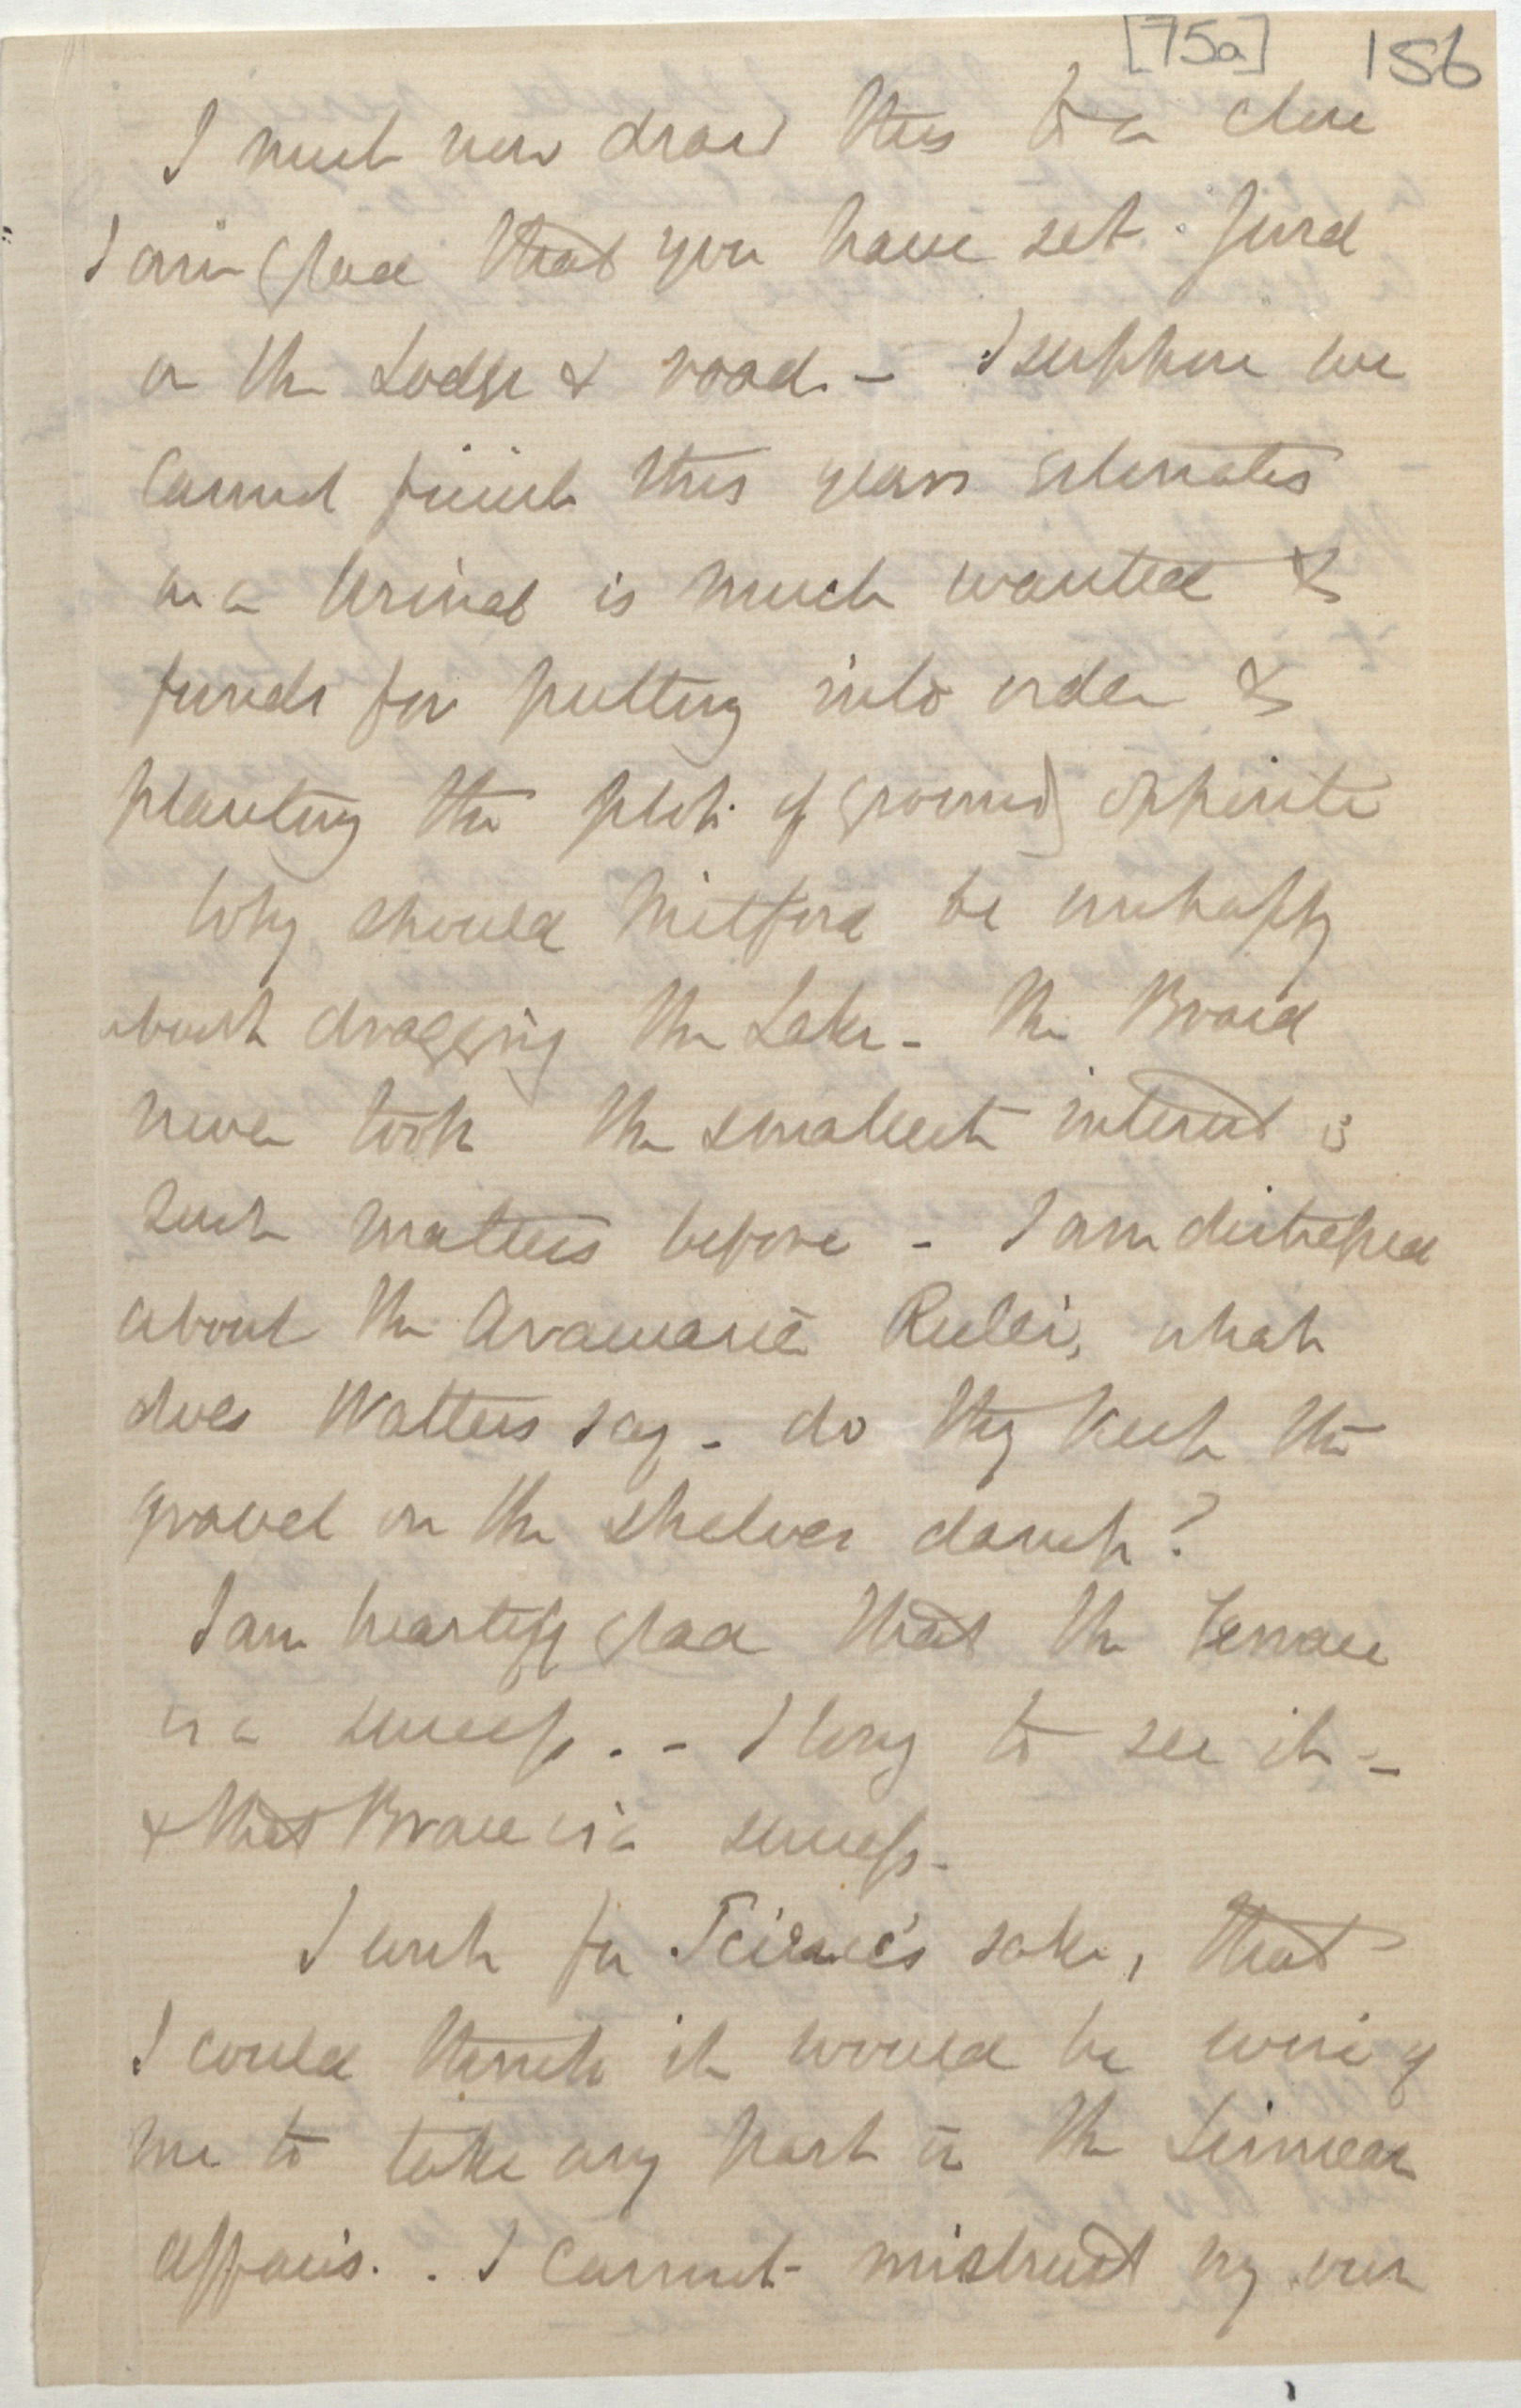 [75a] 156
I must now draw this to a close
I am glad that you have set Jurd
on the Lodge & road. – I suppose we
cannot finish this years estimates
as a Urinal is much wanted &
funds for putting into order &
planting the plot of ground opposite
Why should Mitford be unhappy
about dragging the Lake – the Board
never took the smallest interest in
such matters before – I am distressed
about the Araucaria Rulei, what
does Watters say – do they keep the
gravel on the shelves damp?
I am heartily glad that the Terrace
is a success. – I long to see it –
& that Brace is a success –
I wish for Science's sake, that
I could think it would be wise of
me to take any part in the Linnean
affairs. . I cannot mistrust my own